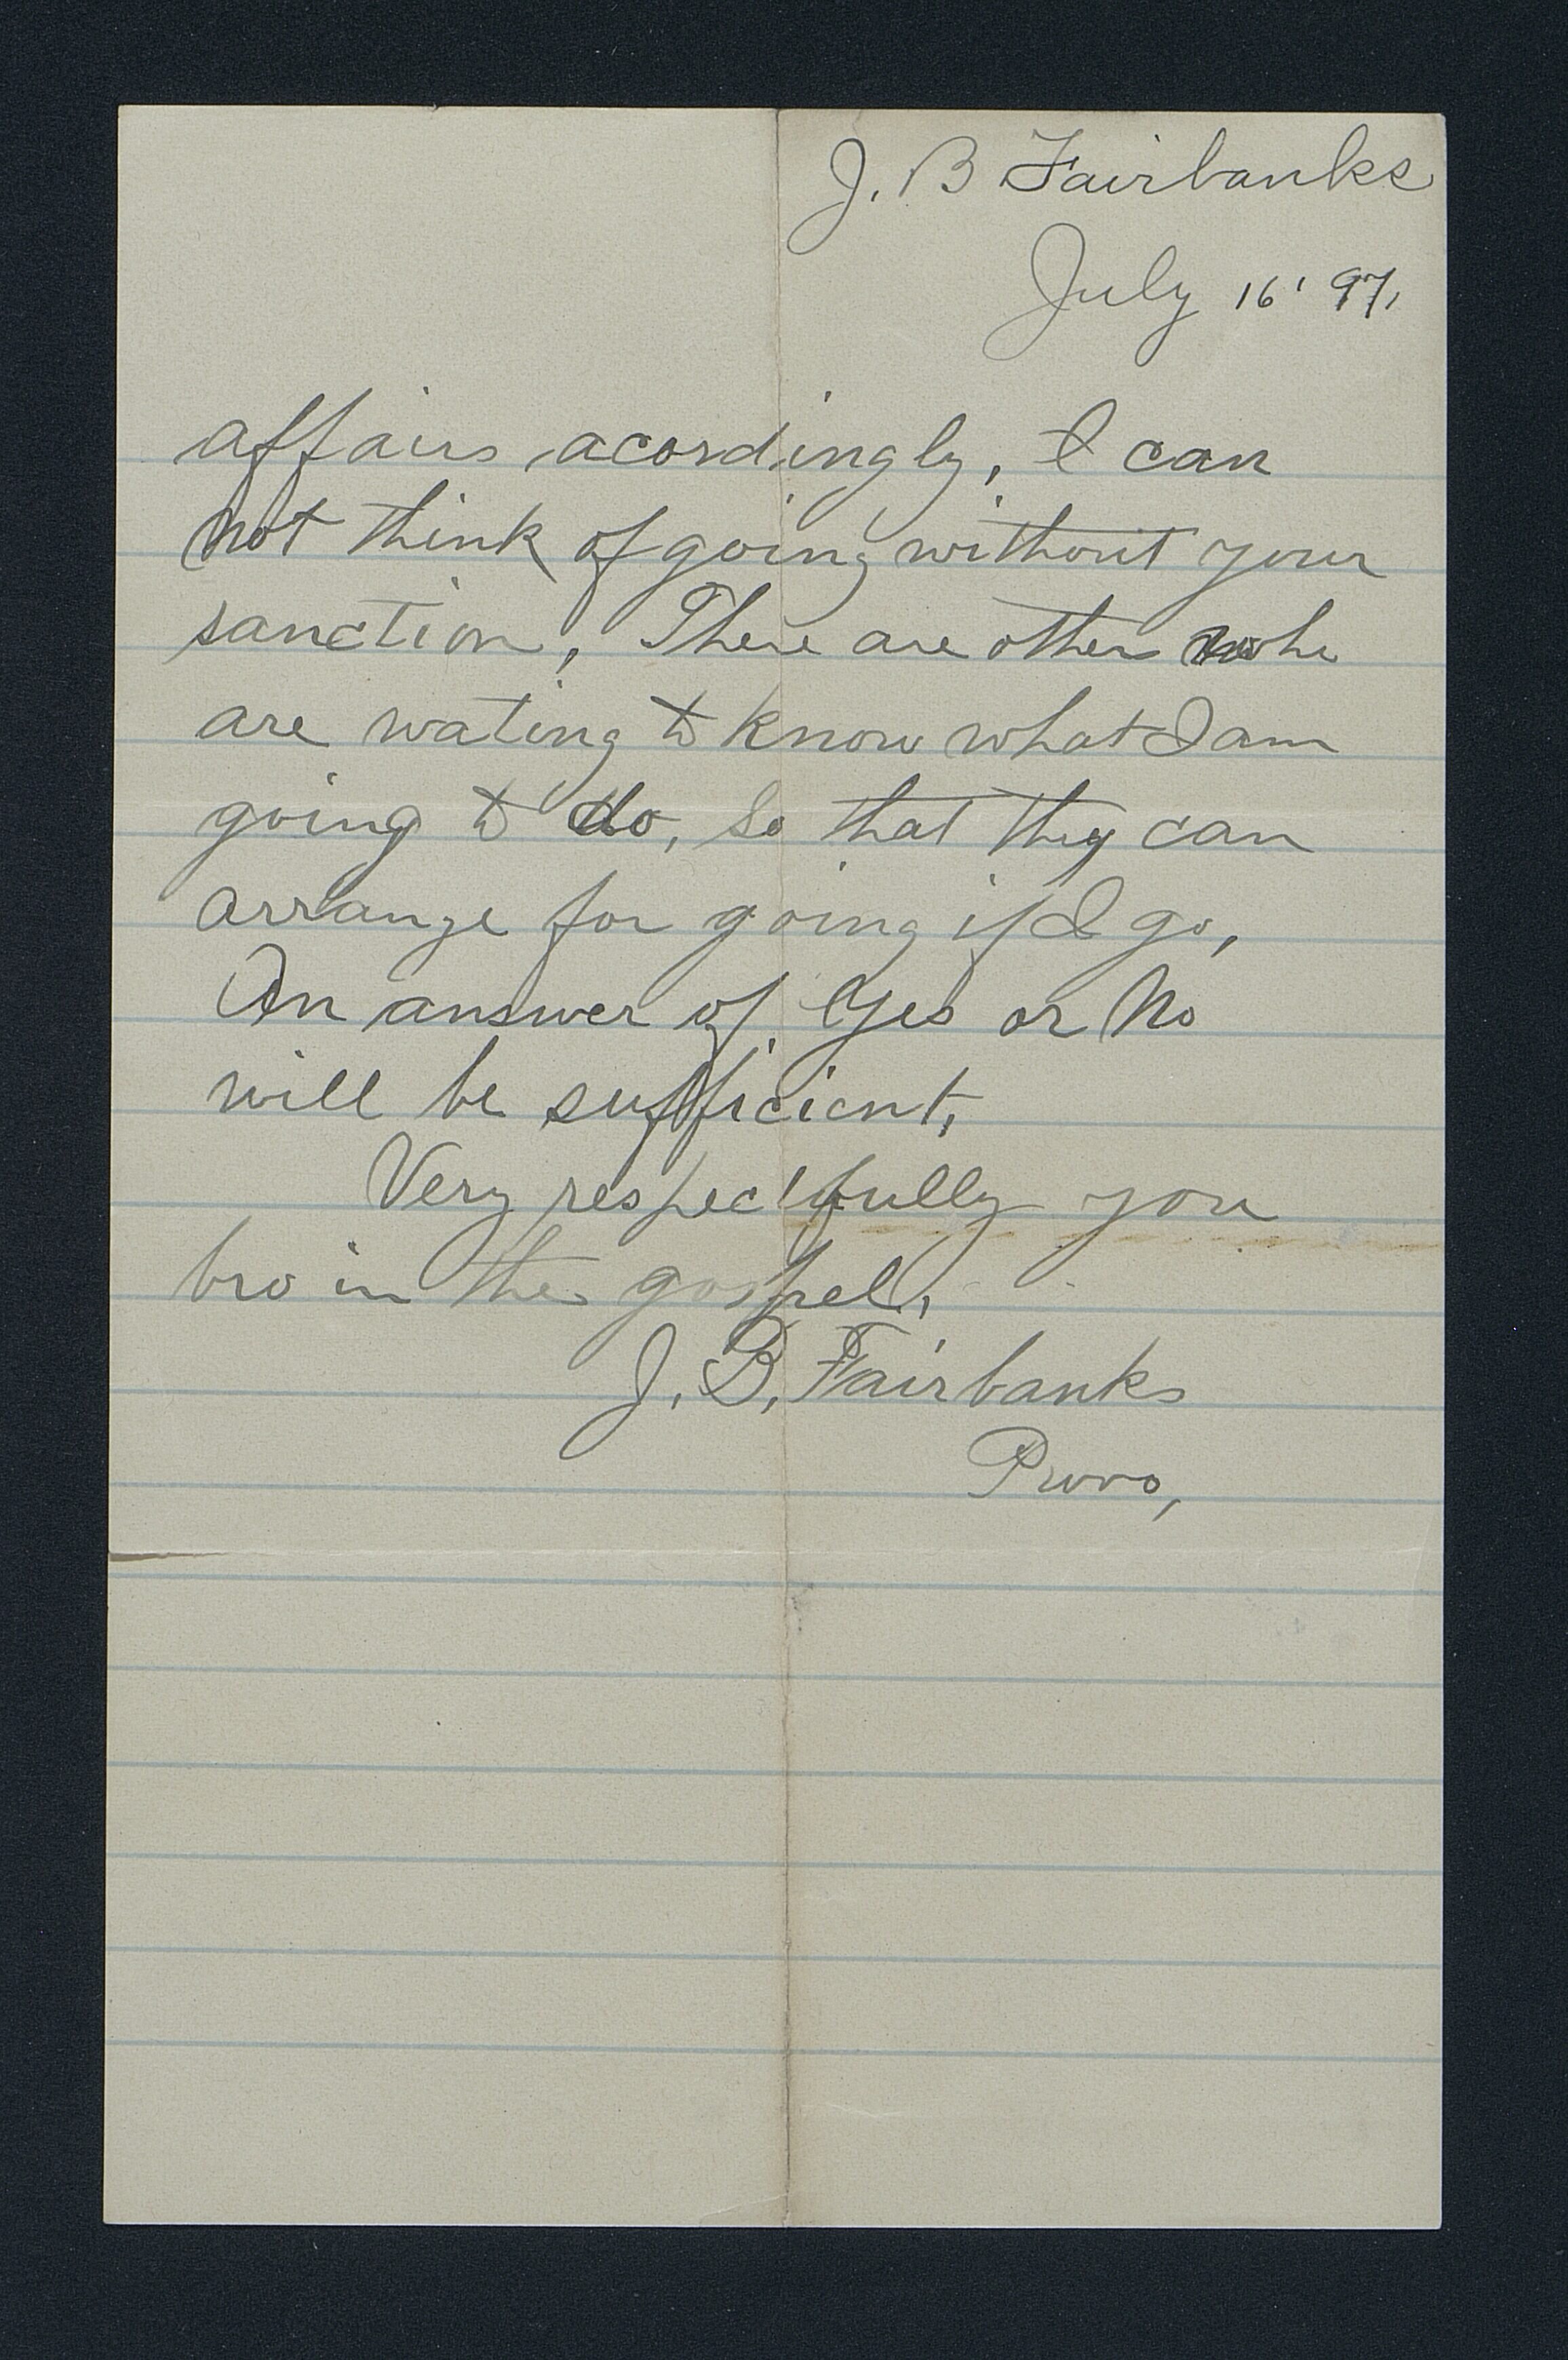 J. B Fairbanks
July 16' 97,
affairs acordingly, I can
not think of going without your
sanction, There are other who
are wating to know what I am
going to do, so that they can
arrange for going if I go,
An answer of Yes or No
will be sufficient,
Very respectfully your
bro in the gospel,
J. B. Fairbanks
Provo,